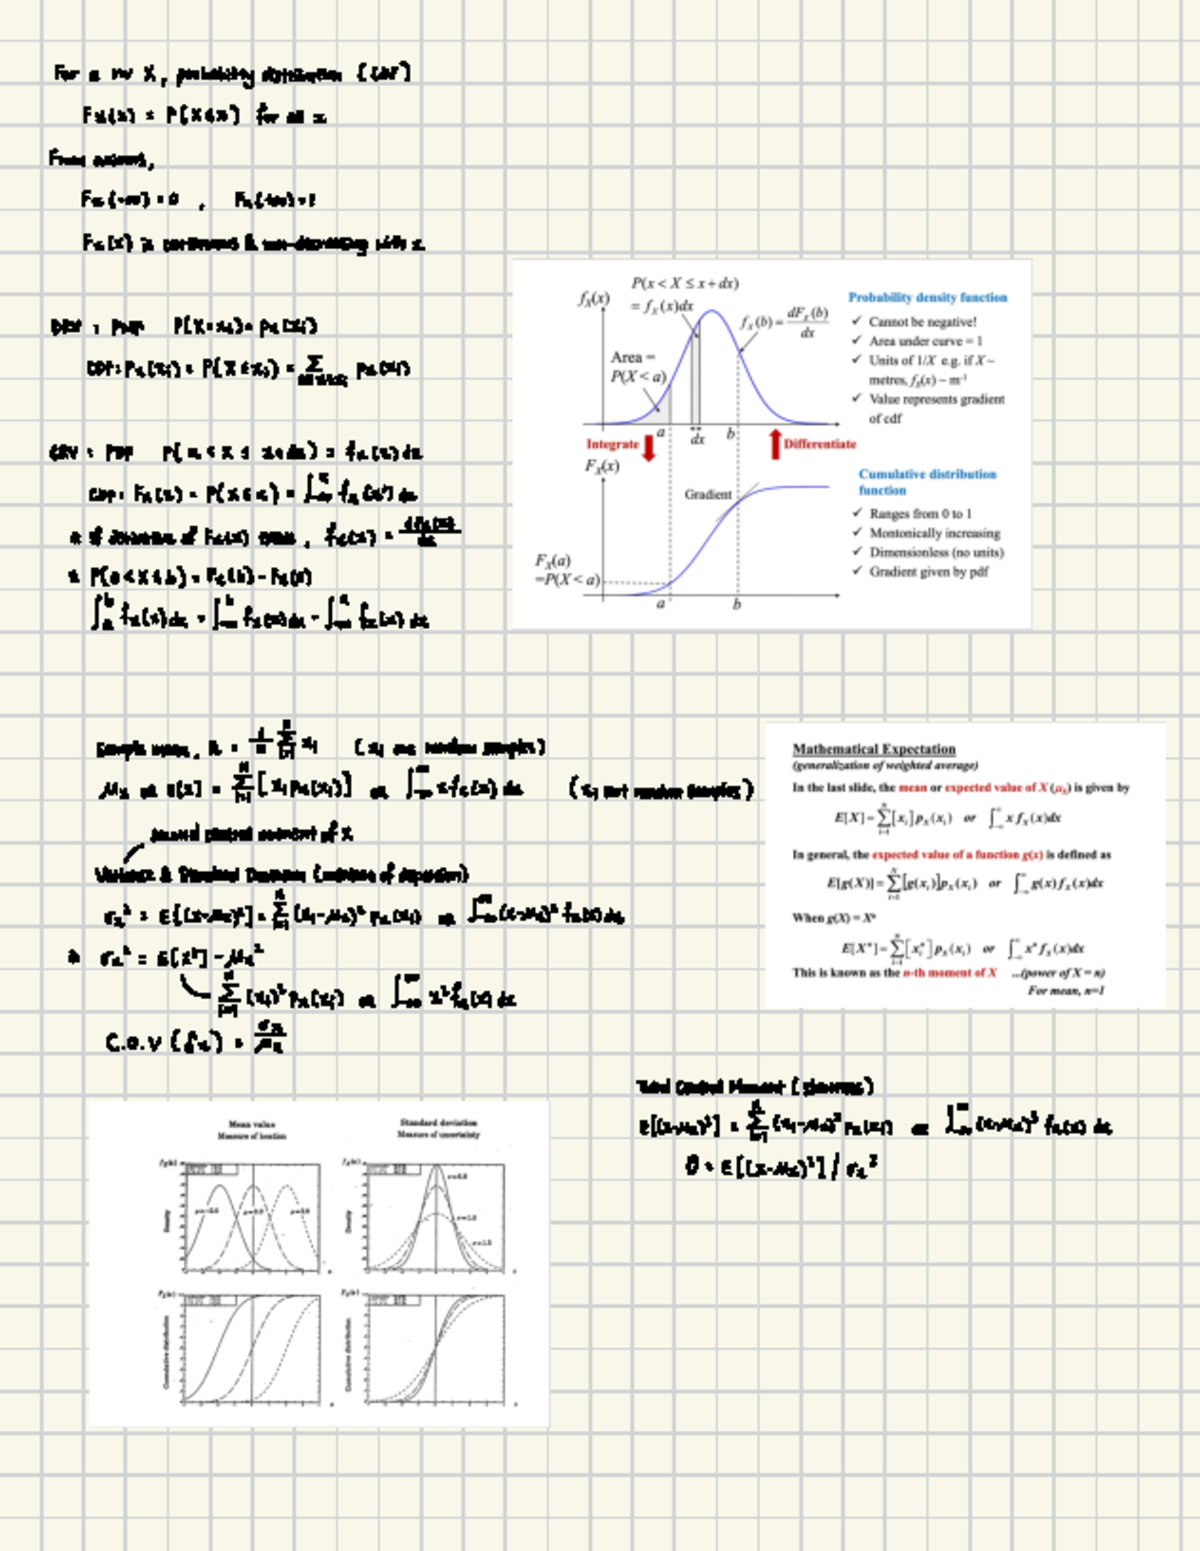 For a rv X, probability distribution (CDF)
Fx(x) = P(X≤x) for all x
From axioms,
Fx(-∞) = 0 , Fx(+∞) = 1
Fx(x) is continuous & non-decreasing with x
DRV : PMF P(X=xi) = px(xi)
CDF: Fx(xi) = P(X≤xi) = Σ px(xi)
CRV : PDF P(x < X ≤ x+dx) = fx(x) dx
CDF: Fx(x) = P(X≤x) = ∫ fx(x) dx
* if derivative of Fx(x) exists, fx(x) = dFx(x)/dx
* P(a<X≤b) = Fx(b) - Fx(a)
∫_a^b fx(x)dx = ∫_-∞^b fx(x)dx - ∫_-∞^a fx(x)dx
P(x < X ≤ x+dx)
= f_X(x)dx
f_X(x)
f_X(b) = dF_X(b)/dx
Area =
P(X<a)
a dx b
Integrate
Differentiate
F_X(x)
Gradient
F_X(a)
=P(X<a)
a b
Probability density function
✓ Cannot be negative!
✓ Area under curve = 1
✓ Units of 1/X e.g. if X ~
metres, f_X(x) ~ m⁻¹
✓ Value represents gradient
of cdf
Cumulative distribution
function
✓ Ranges from 0 to 1
✓ Montonically increasing
✓ Dimensionless (no units)
✓ Gradient given by pdf
Sample mean, x̄ = 1/n Σ xi (xi are random samples)
μx or E[x] = Σ [xi px(xi)] or ∫_-∞^∞ x fx(x) dx (xi not random samples)
second central moment of X
Variance & Standard Deviation (measure of dispersion)
σx² = E[(x-μx)²] = Σ (xi-μx)² px(xi) or ∫_-∞^∞ (x-μx)² fx(x) dx
* σx² = E[x²] - μx²
Σ (xi)² px(xi) or ∫_-∞^∞ x² fx(x) dx
C.O.V (δx) = σx/μx
Mathematical Expectation
(generalization of weighted average)
In the last slide, the mean or expected value of X (μx) is given by
E[X] = Σ[x_i]p_X(x_i) or ∫_-∞^∞ x f_X(x)dx
In general, the expected value of a function g(x) is defined as
E[g(X)] = Σ[g(x_i)]p_X(x_i) or ∫_-∞^∞ g(x) f_X(x)dx
When g(X) = Xⁿ
E[Xⁿ] = Σ[x_iⁿ]p_X(x_i) or ∫_-∞^∞ xⁿ f_X(x)dx
This is known as the n-th moment of X ...(power of X = n)
For mean, n=1
Third Central Moment (skewness)
E[(x-μx)³] = Σ (xi-μx)³ px(xi) or ∫_-∞^∞ (x-μx)³ fx(x) dx
θ = E[(x-μx)³] / σx³
Mean value
Measure of location
Standard deviation
Measure of uncertainty
Density
Density
Cumulative distribution
Cumulative distribution